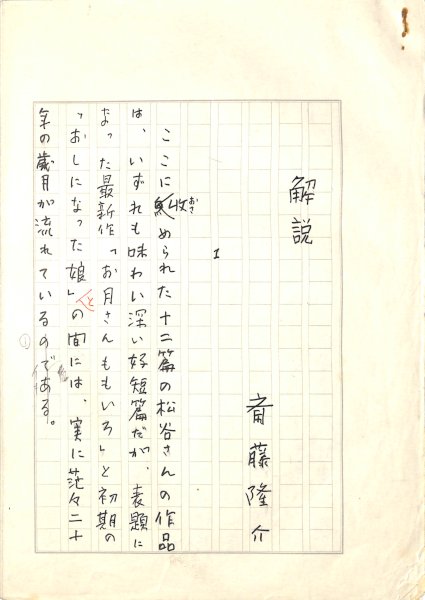 解説
斎藤隆介
I
ここに收められた十二篇の松谷さんの作品
おさ
は、いずれも味わい深い好短篇だが、表題に
なった最新作「お月さんももいろ」と初期の
「おしになった娘」との間には、実に茫々二十
年の歳月が流れているのである。